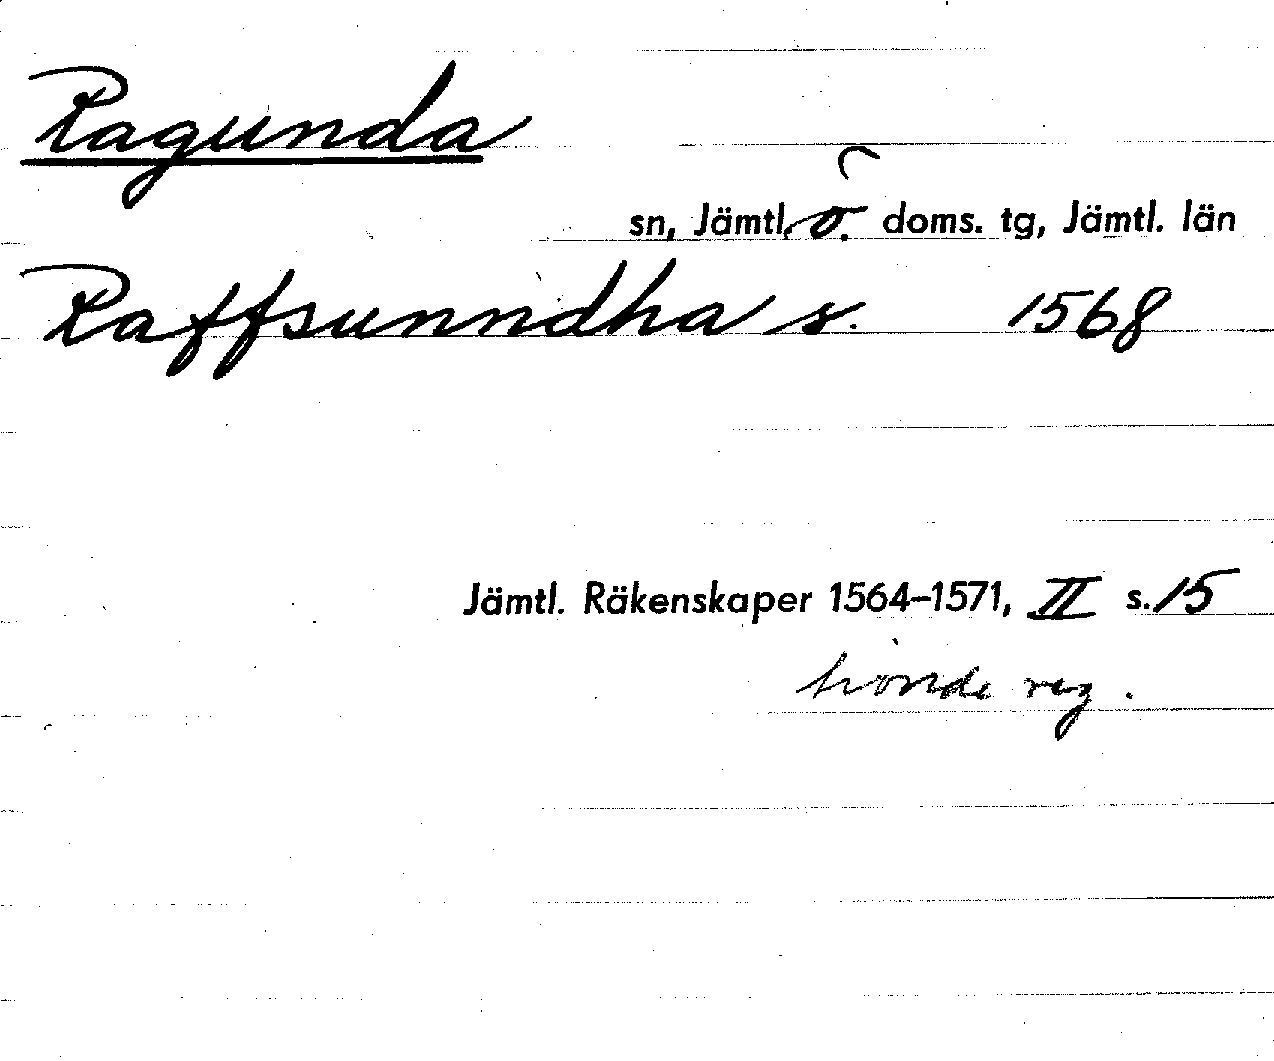 Ragunda
sn, Jämtl. ö. doms. tg, Jämtl. län
Raffsunndha s. 1568
Jämtl. Räkenskaper 1564-1571, II s. 15
reg.